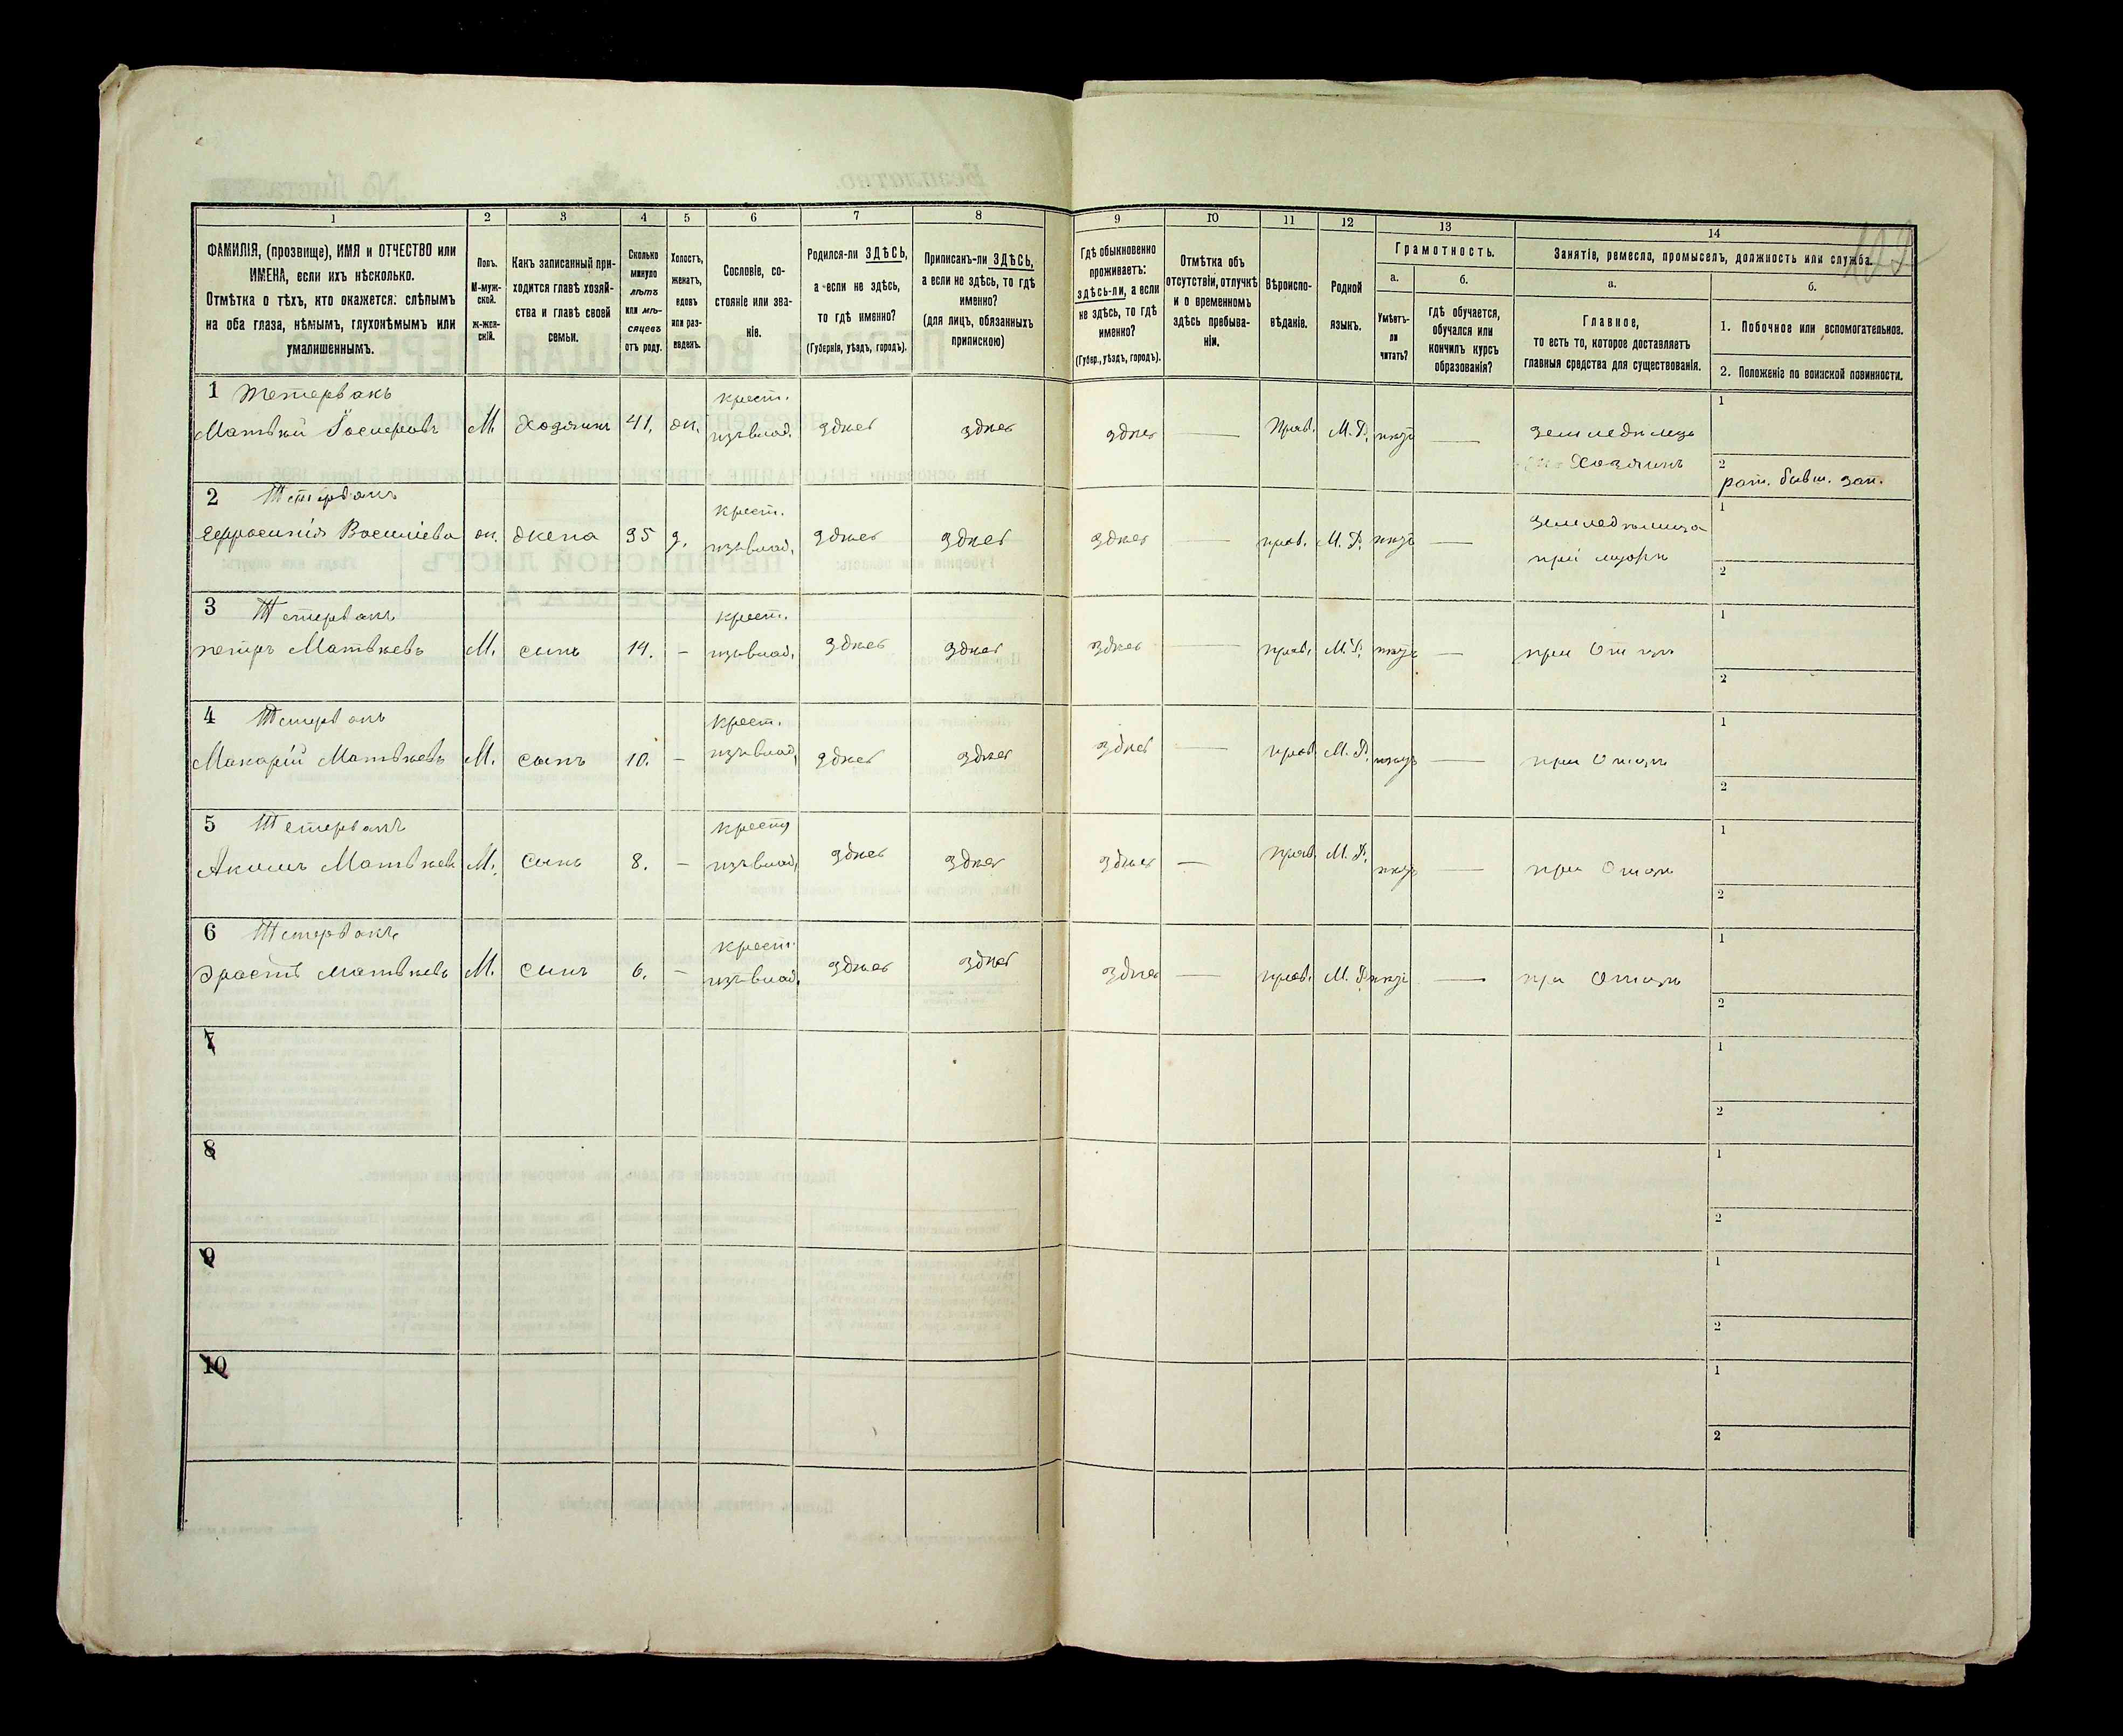 1 2 3 4 5 6 7 8 9 10 11 12 13 14
ФАМИЛІЯ, (прозвище), ИМЯ и ОТЧЕСТВО или
ИМЕНА, если ихъ нѣсколько.
Отмѣтка о тѣхъ, кто окажется: слѣпымъ
на оба глаза, нѣмымъ, глухонѣмымъ или
умалишеннымъ.
Полъ.
М-муж-
ской.
ж-жен-
скій.
Какъ записанный при-
ходится главѣ хозяй-
ства и главѣ своей
семьи.
Сколько
минуло
лѣтъ
или мѣ-
сяцевъ
отъ роду.
Холостъ,
женатъ,
вдовъ
или раз-
веденъ.
Сословіе, со-
стояніе или зва-
ніе.
Родился-ли ЗДѢСЬ,
а если не здѣсь,
то гдѣ именно?
(Губернія, уѣздъ, городъ).
Приписанъ-ли ЗДѢСЬ,
а если не здѣсь, то гдѣ
именно?
(для лицъ, обязанныхъ
припискою)
Гдѣ обыкновенно
проживаетъ:
здѣсь-ли, а если
не здѣсь, то гдѣ
именно?
(Губер., уѣздъ, городъ).
Отмѣтка объ
отсутствіи, отлучкѣ
и о временномъ
здѣсь пребыва-
ніи.
Вѣроиспо-
вѣданіе.
Родной
языкъ.
Грамотность.
а.
Умѣетъ-
ли
читать?
б.
гдѣ обучается,
обучался или
кончилъ курсъ
образованія?
Занятіе, ремесло, промыселъ, должность или служба.
а.
Главное,
то есть то, которое доставляетъ
главныя средства для существованія.
б.
1. Побочное или вспомогательное.
2. Положеніе по воинской повинности.
1 Тетервакъ крест. 1
Матвѣй М. Хозяинъ 41. ж. здѣсь здѣсь здѣсь — Прав. М. Р. — земледѣлецъ
Хозяинъ 2 рат.
2 Тетервакъ крест. 1
Ефросинія Василіева ж. жена 35 з. здѣсь здѣсь здѣсь — прав. М. Р. —
при мужѣ 2
3 Тетервакъ крест. 1
петръ Матвѣевъ М. сынъ 14. - здѣсь здѣсь здѣсь — прав. М. Р. — при Отцѣ
2
4 Тетервакъ крест. 1
Макарій Матвѣевъ М. сынъ 10. - здѣсь здѣсь здѣсь — прав. М. Р. — при Отцѣ
2
5 Тетервакъ крест 1
Акимъ Матвѣевъ М. Сынъ 8. - здѣсь здѣсь здѣсь — прав. М. Р. — при Отцѣ
2
6 Тетервакъ крест. 1
Эрастъ Матвѣевъ М. сынъ 6. - здѣсь здѣсь здѣсь — прав. М. Р. — при Отцѣ
2
7 1
2
8 1
2
9 1
2
10 1
2